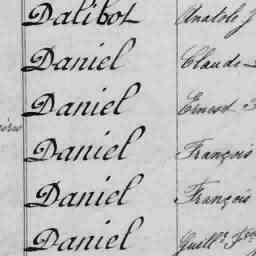 Dalibot Anatole J
Daniel Claude
Daniel Ernest
Daniel François
Daniel François
Daniel Guill.e